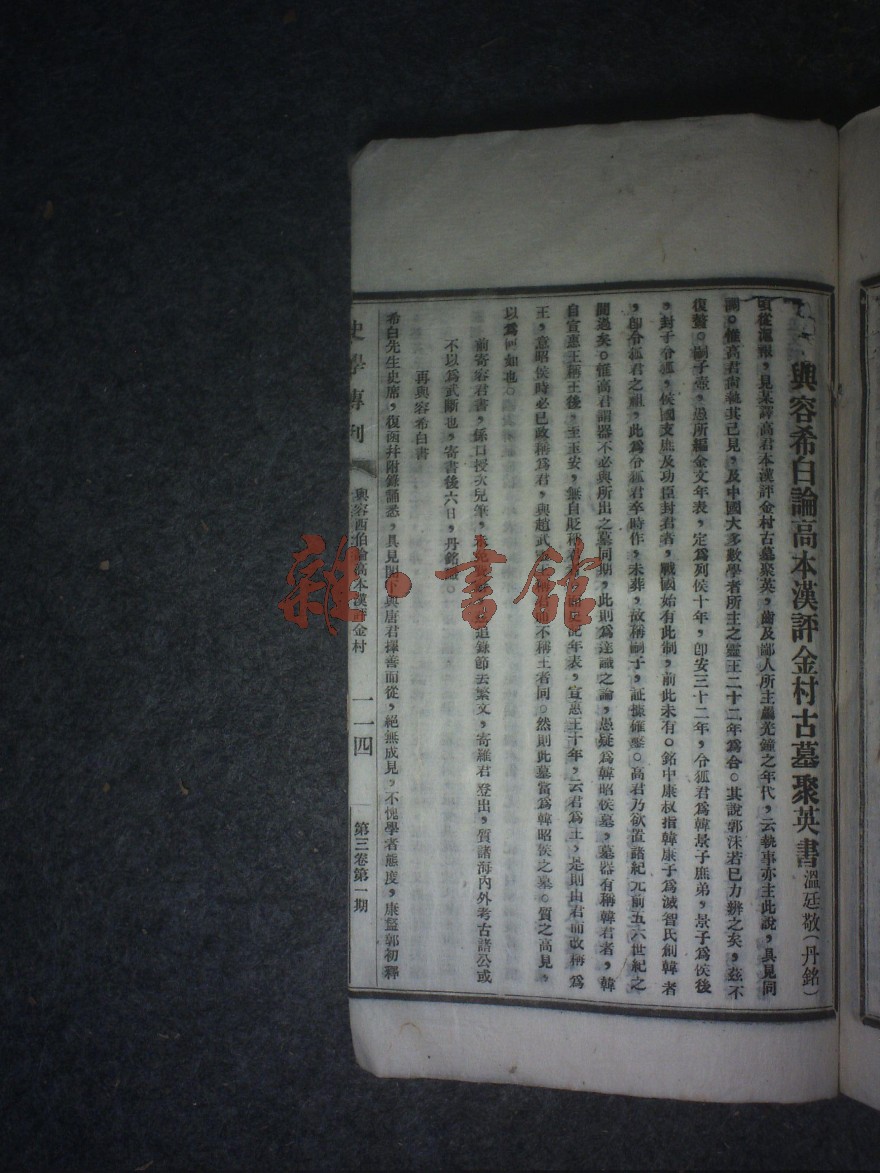 與容希白論高本漢評金村古墓聚英書 溫廷敬(丹銘)
頃從滬報,見某譯高君本漢評金村古墓聚英,齒及鄙人所主驫羌鐘之年代,云執事亦主此說,具見同
調。惟高君尚執其己見,及中國大多數學者所主之靈王二十二年為合。其說郭沫若已力辨之矣,茲不
復贅。嗣子壺,愚所編金文年表,定為列侯十年,卽安三十二年,令狐君為韓景子庶弟,景子為侯後
,封子令狐,侯國支庶及功臣封君者,戰國始有此制,前此未有。銘中康叔指韓康子為滅智氏創韓者
,卽令狐君之祖,此為令狐君卒時作,未葬,故稱嗣子,証據確鑿。高君乃欲置諸紀元前五六世紀之
間過矣。惟高君謂器不必與所出之墓同期,此則為達識之論,愚疑為韓昭侯墓,墓器有稱韓君者,韓
自宣惠王稱王後,至王安,無自貶稱 年表,宣惠王十年,云君為王,是則由君而改稱為
王,意昭侯時必已改稱為君,與趙武靈 不稱王者同。然則此墓當為韓昭侯之墓。質之高見,
以為何如也。
前寄容君書,係口授次兒筆, 追錄節去繁文,寄羅君登出,質諸海內外考古諸公或
不以為武斷也,寄書後六日,丹銘
再與容希白書
希白先生史席,復函幷附錄誦悉,具見閣下與唐君擇善而從,絕無成見,不愧學者態度,康盨郭初釋
史學專刊
與容西伯論高本漢評金村
一一四
第三卷第一期
雜·書館